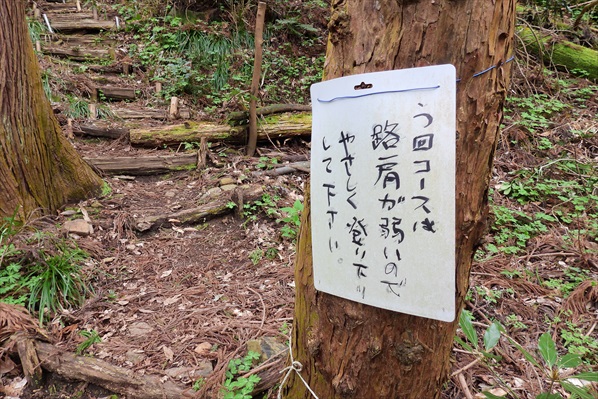 う回コースは
路肩が弱いので
やさしく登り下り
して下さい。